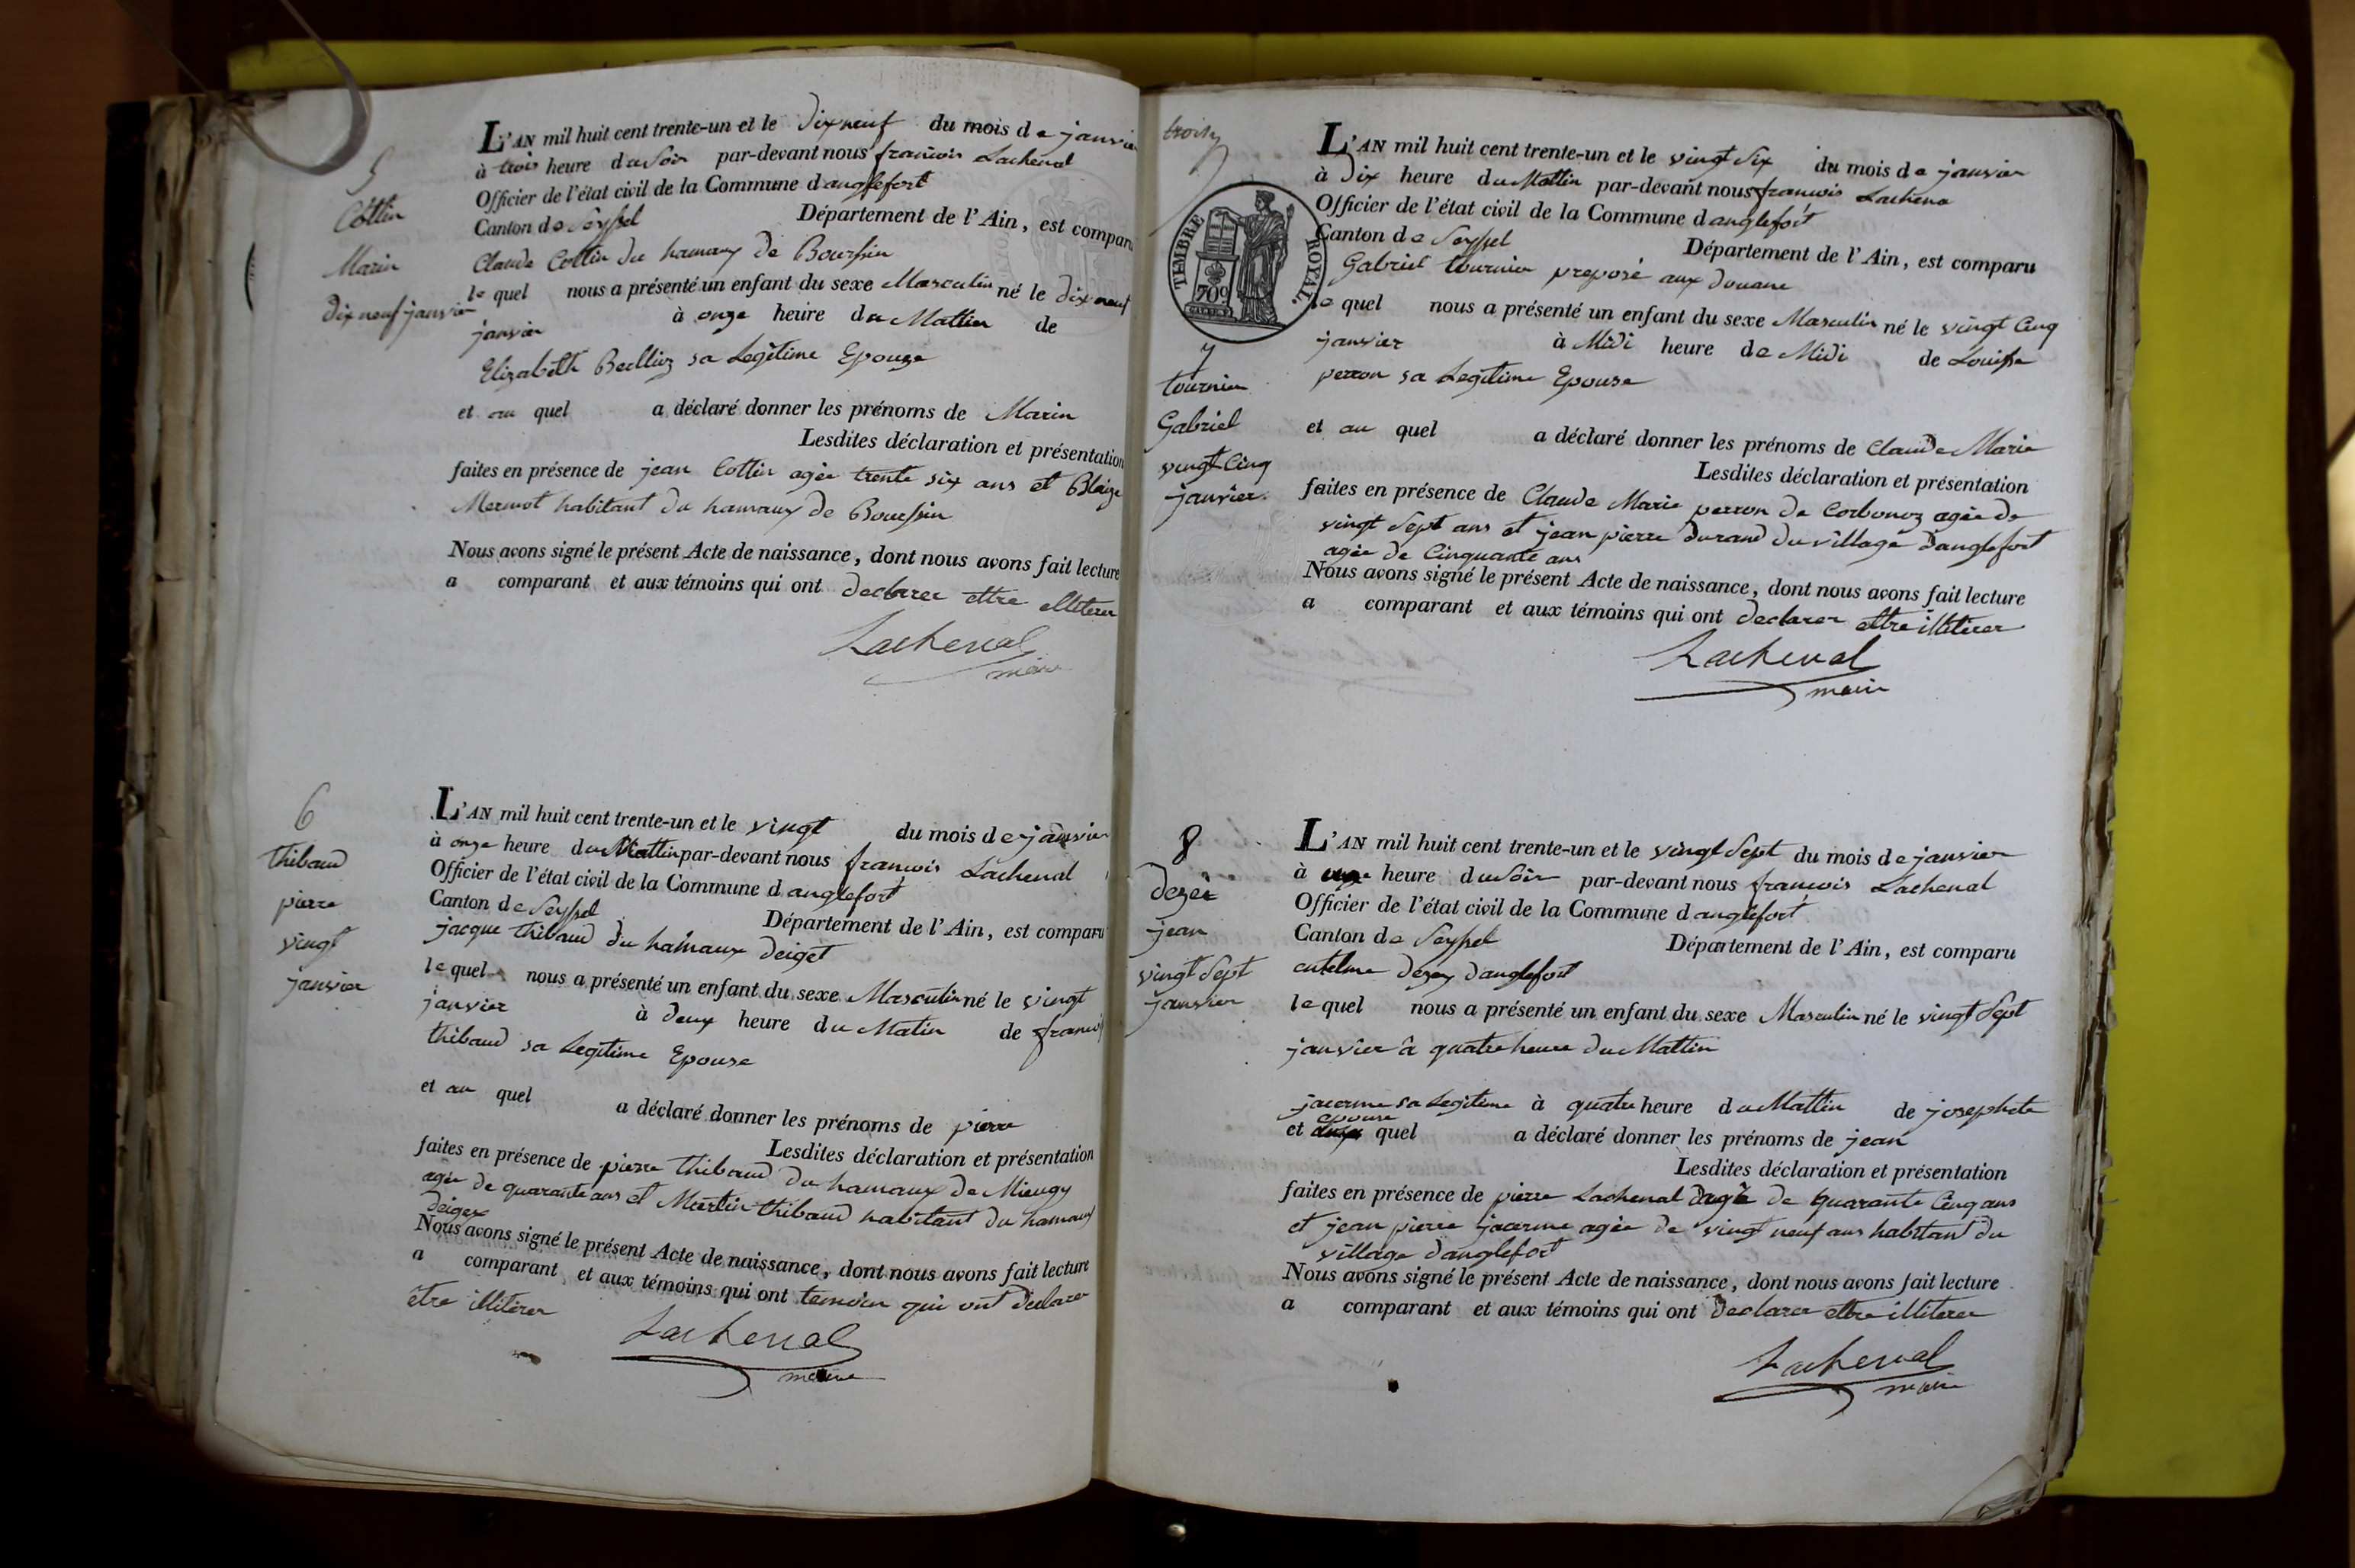 5
Cottin
Marin
dix neuf janvier
L'AN mil huit cent trente-un et le dix neuf du mois de janvier
à trois heure du Soir par-devant nous francois Lachenal
Officier de l'état civil de la Commune d'anglefort
Canton de Seyssel Département de l'Ain, est comparu
Claude Cottin du hamaux de Boursin
le quel nous a présenté un enfant du sexe Masculin né le dix neuf
janvier à onze heure du Mattin de
Elizabeth sa Legitime Epouze
et au quel a déclaré donner les prénoms de Marin
Lesdites déclaration et présentation
faites en présence de jean Cottin agée trente six ans et Blaize
Mermot habitant du hamaux de Boursin
Nous avons signé le présent Acte de naissance, dont nous avons fait lecture
a comparant et aux témoins qui ont declarer ettre illiterer
Lachenal
maire
6
thibaud
pierre
vingt
janvier
L'AN mil huit cent trente-un et le vingt du mois de janvier
à onze heure du Mattin par-devant nous francois Lachenal
Officier de l'état civil de la Commune d'anglefort
Canton de Seyssel Département de l'Ain, est comparu
jacque thibaud du hamaux deiget
le quel nous a présenté un enfant du sexe Masculin né le vingt
janvier à deux heure du Matin de
thibaud sa Legitime Epouse
et au quel a déclaré donner les prénoms de pierre
Lesdites déclaration et présentation
faites en présence de pierre thibaud du hamaux de Mieugy
agée de quarante ans et Martin thibaud habitant du hamaux
deiget
Nous avons signé le présent Acte de naissance, dont nous avons fait lecture
a comparant et aux témoins qui ont temoin qui ont declarer
etre illiterer
Lachenal
maire
troisy
TIMBRE ROYAL.
70c
7
tournier
Gabriel
vingt Cinq
janvier
L'AN mil huit cent trente-un et le vingt Six du mois de janvier
à Dix heure du Mattin par-devant nous francois Lachena
Officier de l'état civil de la Commune d'anglefort
Canton de Seyssel Département de l'Ain, est comparu
Gabriel tournier preposé aux douane
le quel nous a présenté un enfant du sexe Masculin né le vingt Cinq
janvier à Midi heure de Midi de Louise
perron sa Legitime Epouse
et au quel a déclaré donner les prénoms de Claude Marie
Lesdites déclaration et présentation
faites en présence de Claude Marie perron de Corbonoz agée de
vingt Sept ans et jean pierre durand du village d'anglefort
agée de Cinquante ans
Nous avons signé le présent Acte de naissance, dont nous avons fait lecture
a comparant et aux témoins qui ont declarer ettre illiterer
Lachenal
maire
8
dezei
jean
vingt Sept
janvier
L'AN mil huit cent trente-un et le vingt Sept du mois de janvier
à heure du Soir par-devant nous francois Lachenal
Officier de l'état civil de la Commune d'anglefort
Canton de Seyssel Département de l'Ain, est comparu
antelme dezey d'anglefort
le quel nous a présenté un enfant du sexe Masculin né le vingt Sept
janvier à quatre heure du Mattin
jacerme sa Legitime à quatre heure du Mattin de josephete
epouse
et quel a déclaré donner les prénoms de jean
Lesdites déclaration et présentation
faites en présence de pierre Lachenal de quarante Cinq ans
et jean pierre jacerme agée de vingt neuf ans habitant du
village d'anglefort
Nous avons signé le présent Acte de naissance, dont nous avons fait lecture
a comparant et aux témoins qui ont declarer ettre illiterer
Lachenal
maire